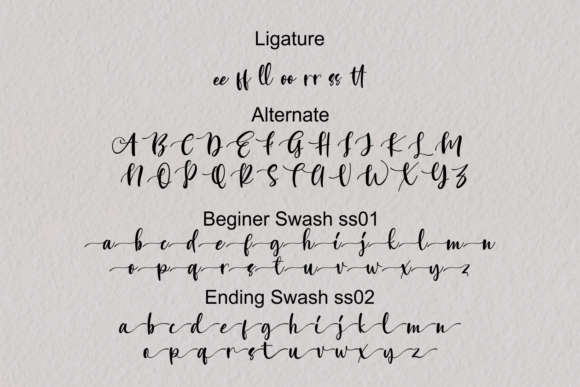 Ligature
ee ff ll oo rr ss tt
Alternate
A B C D E F G H I J K L M
N O P Q R S T U V W X Y Z
Beginer Swash ss01
a b c d e f g h i j k l m n
o p q r s t u v w x y z
Ending Swash ss02
a b c d e f g h i j k l m n
o p q r s t u v w x y z